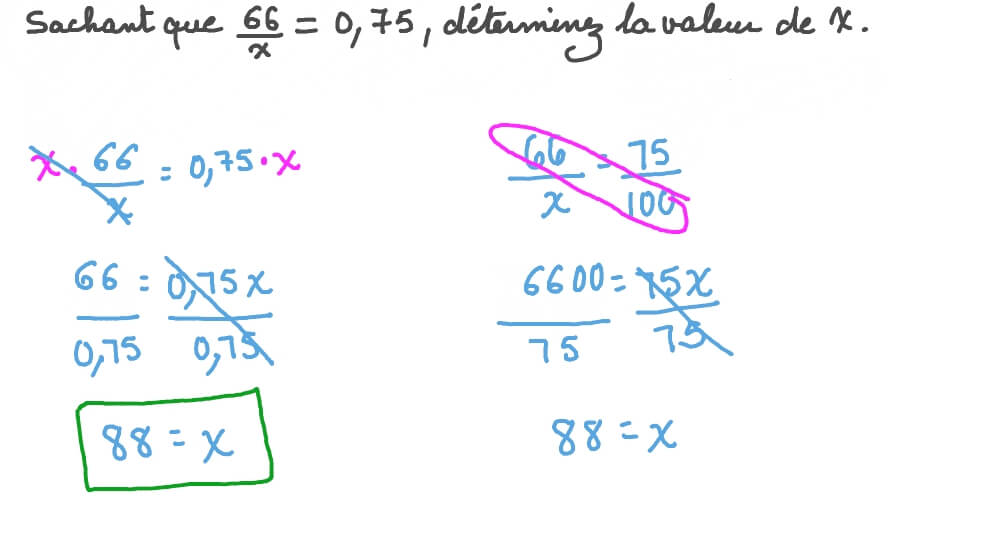 Sachant que 66/x = 0,75, déterminez la valeur de x.
x · 66/x = 0,75 · x
66/0,75 = 0,75x/0,75
88 = x
66/x = 75/100
6600/75 = 75x/75
88 = x